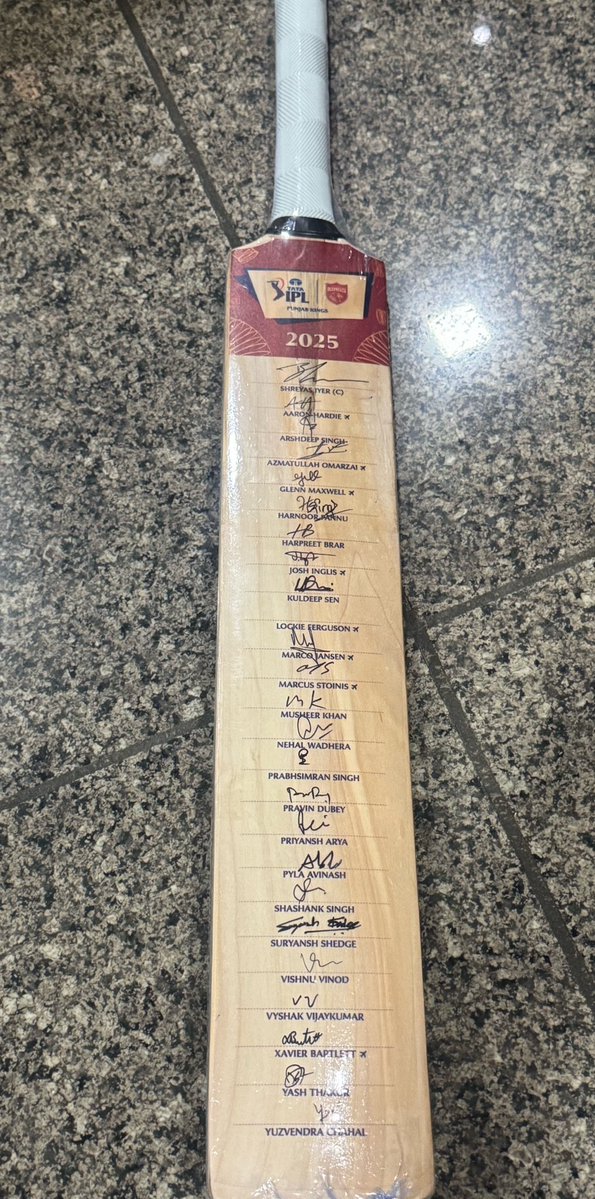 TATA
IPL
PUNJAB KINGS
2025
SHREYAS IYER (C)
AARON HARDIE
ARSHDEEP SINGH
AZMATULLAH OMARZAI
GLENN MAXWELL
HARNOOR PANNU
HARPREET BRAR
JOSH INGLIS
KULDEEP SEN
LOCKIE FERGUSON
MARCO JANSEN
MARCUS STOINIS
MUSHEER KHAN
NEHAL WADHERA
PRABHSIMRAN SINGH
PRAVIN DUBEY
PRIYANSH ARYA
PYLA AVINASH
SHASHANK SINGH
SURYANSH SHEDGE
VISHNU VINOD
VYSHAK VIJAYKUMAR
XAVIER BARTLETT
YASH THAKUR
YUZVENDRA CHAHAL